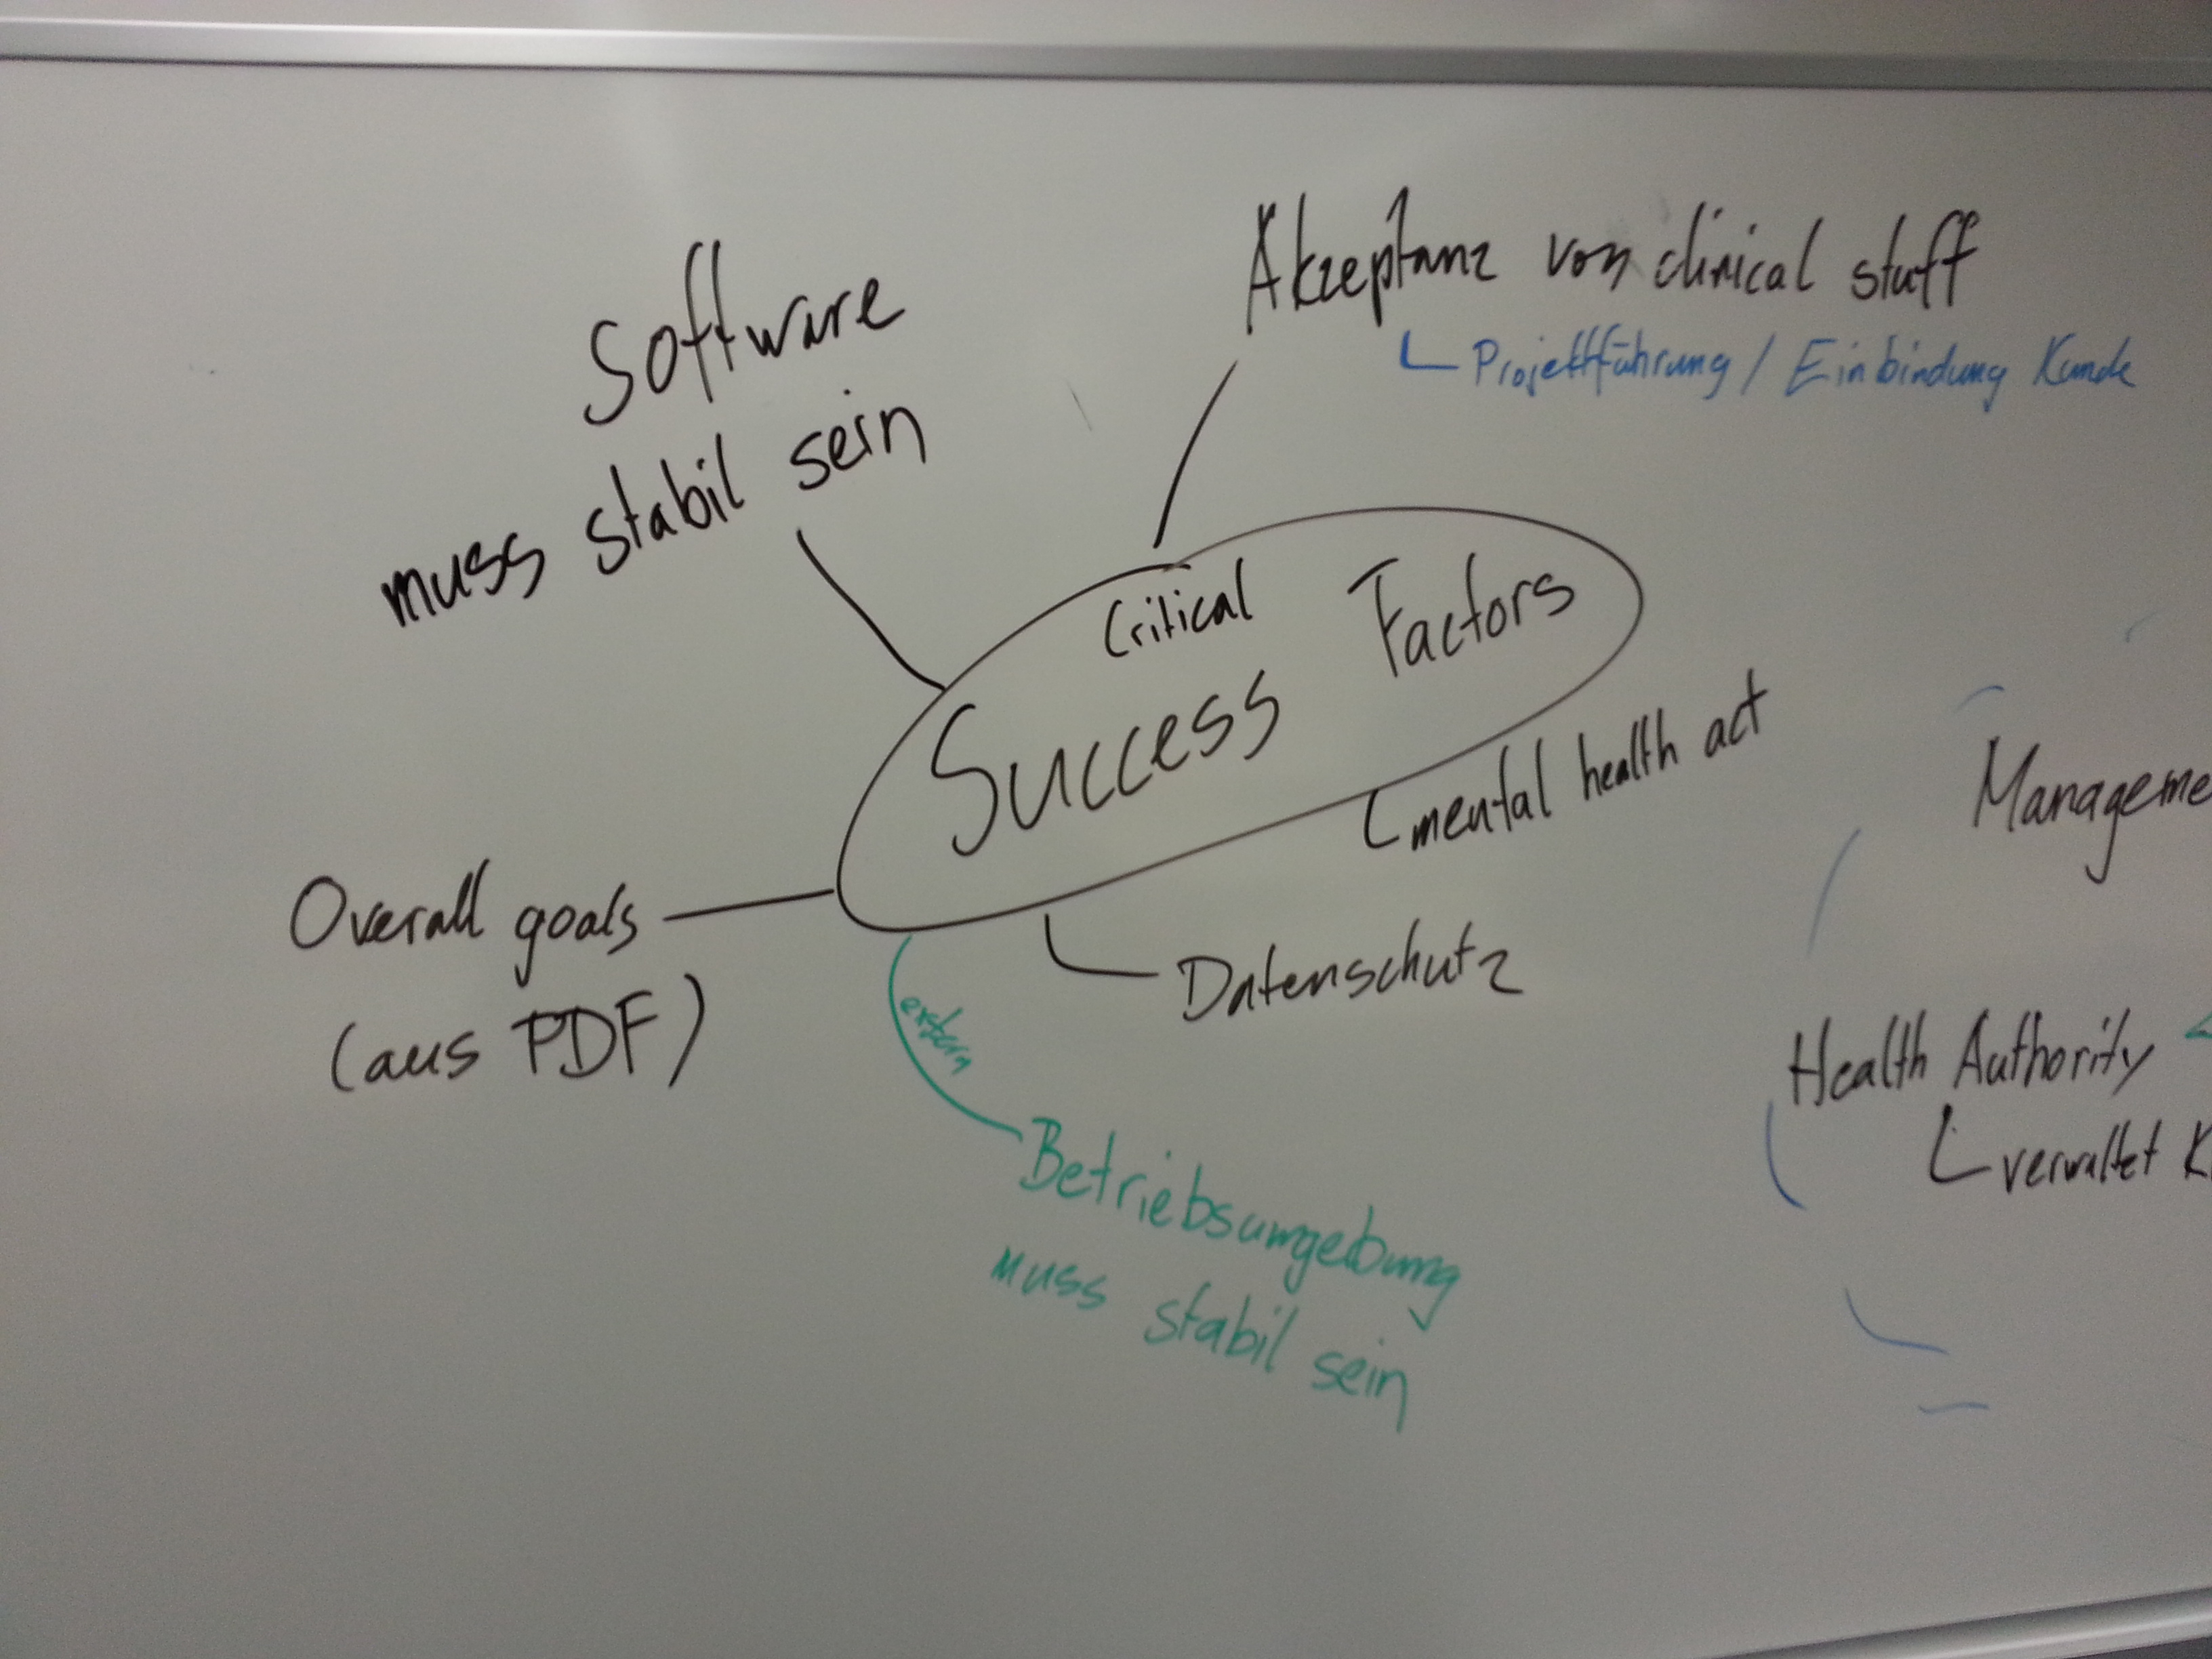 Software
muss stabil sein
Akzeptanz von clinical stuff
Projektführung / Einbindung Kunde
Critical
Success Factors
mental health act
Overall goals
(aus PDF)
Datenschutz
extern
Betriebsumgebung
muss stabil sein
Manageme
Health Authority
verwaltet K